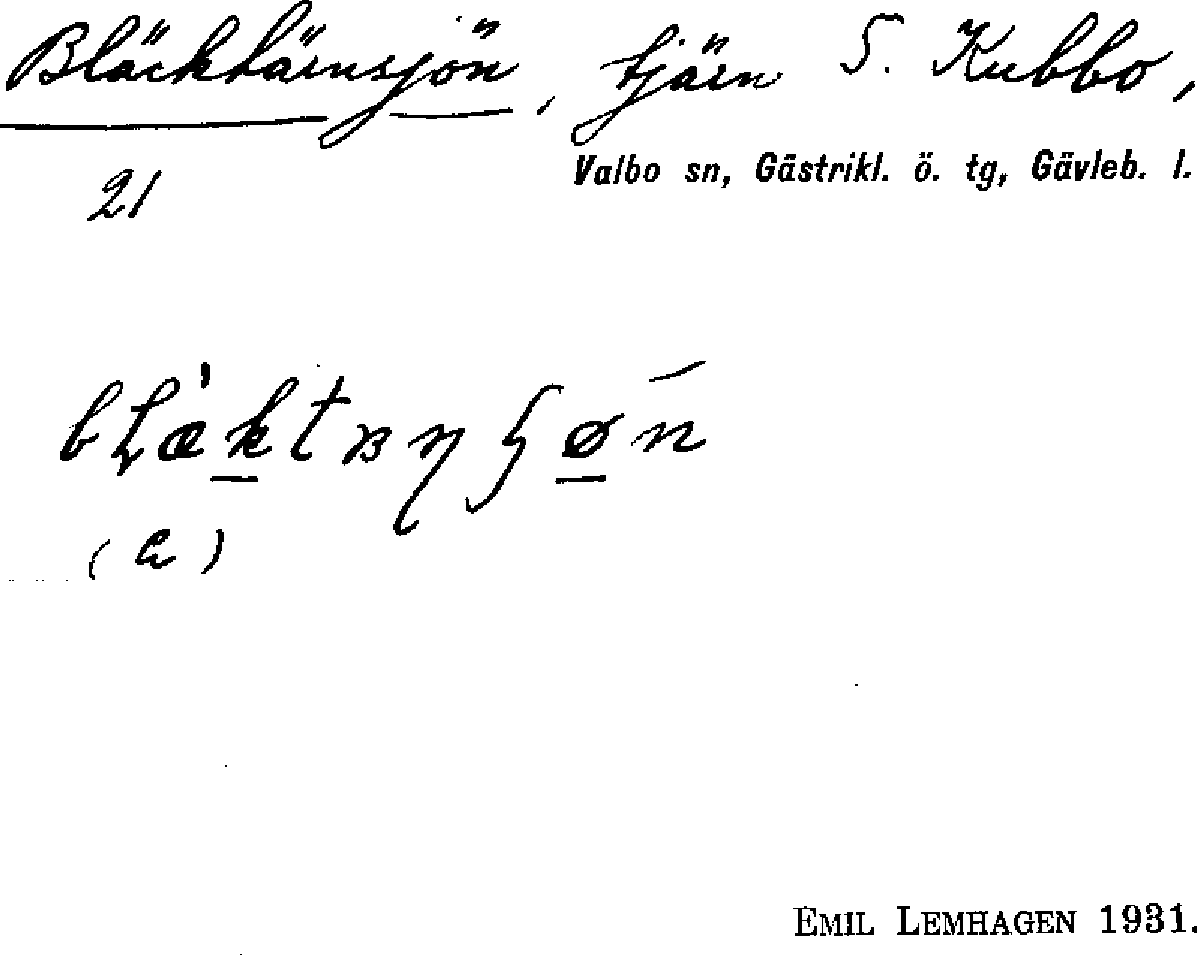 Bläcktärnsjön, tjärn S. Kubbo,
Valbo sn, Gästrikl. ö. tg, Gävleb. l.
21
(a)
EMIL LEMHAGEN 1931.